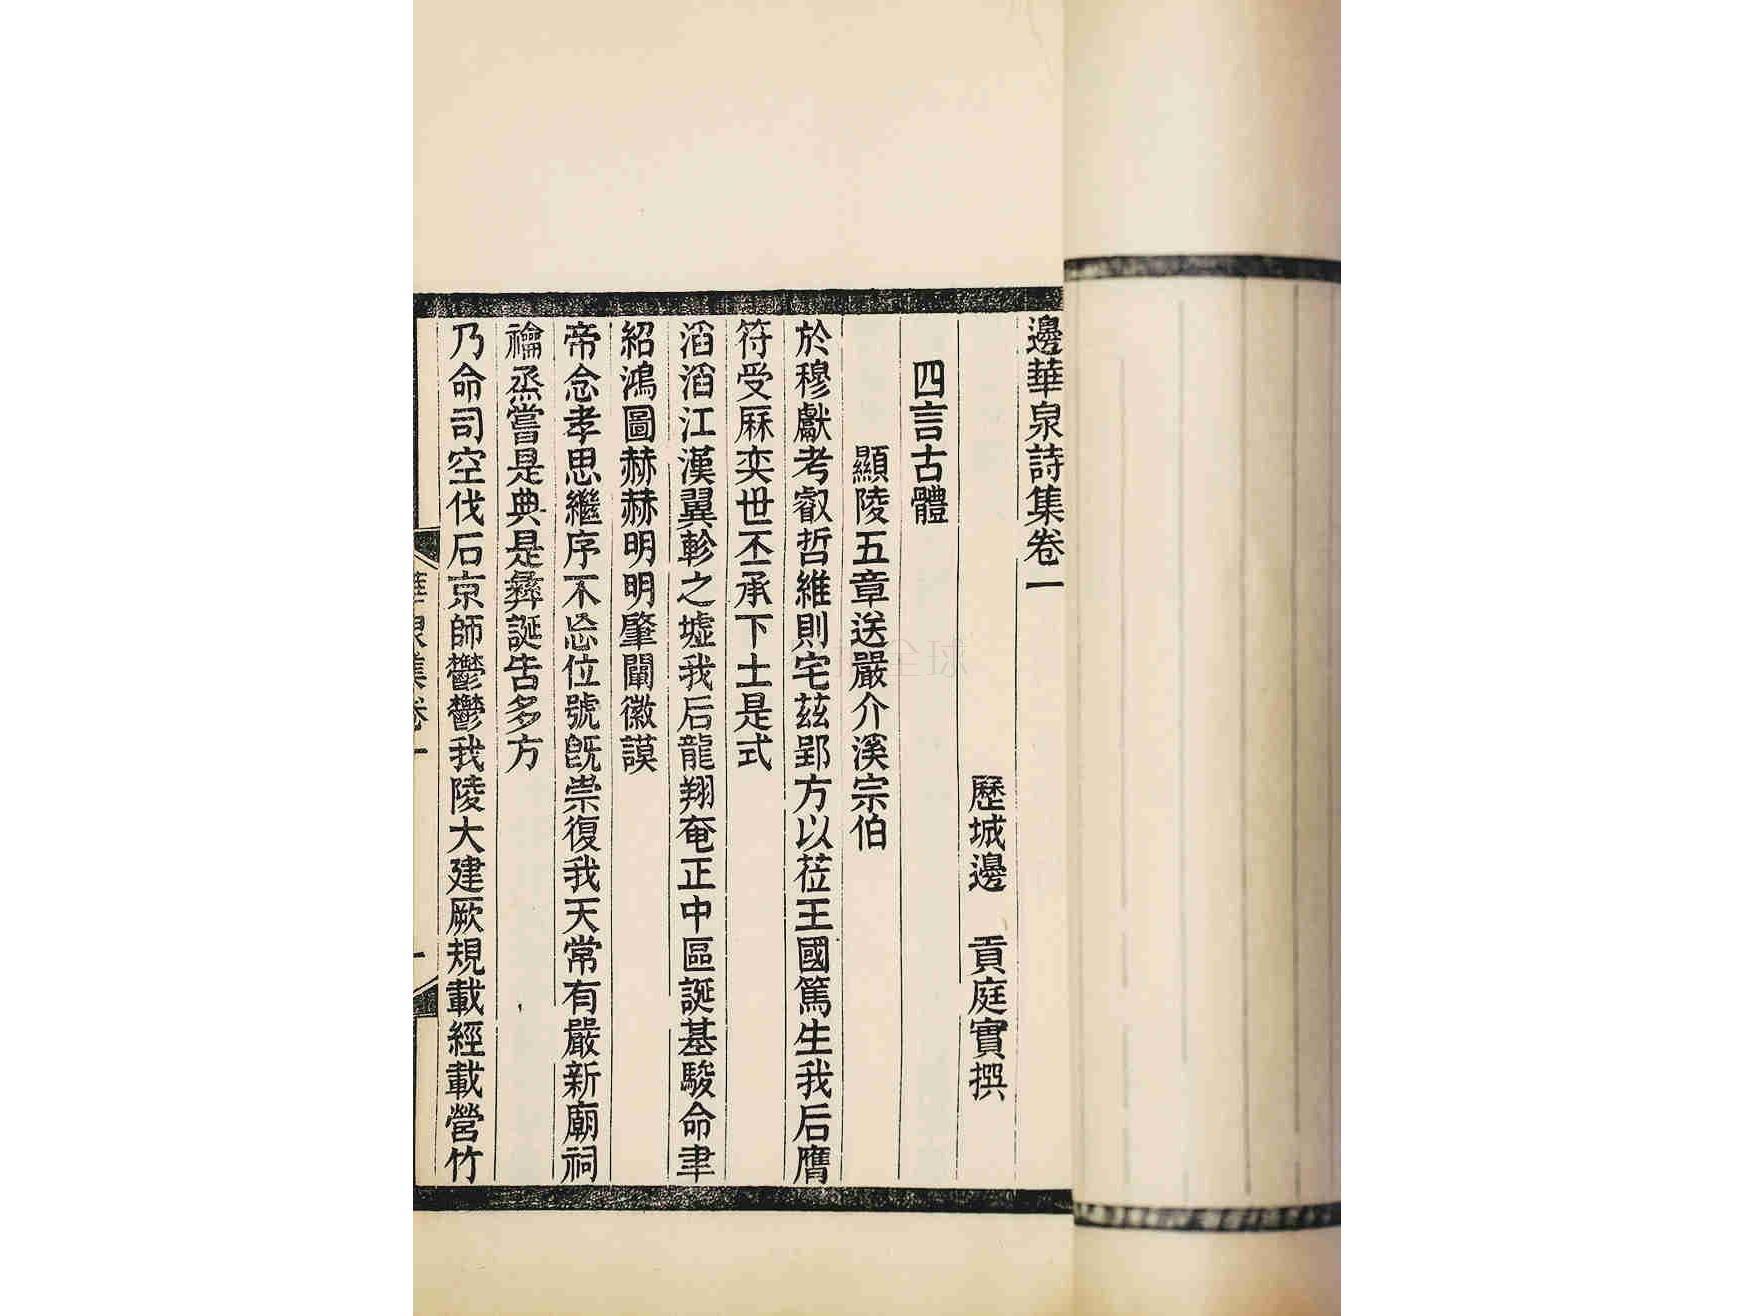 邊華泉詩集卷一
歷城邊　貢庭實撰
四言古體
顯陵五章送嚴介溪宗伯
於穆獻考叡哲維則宅茲郢方以莅王國篤生我后膺
符受庥奕世丕承下土是式
滔滔江漢翼軫之墟我后龍翔奄正中區誕基駿命聿
紹鴻圖赫赫明明肇闡徽謨
帝念孝思繼序不忘位號旣崇復我天常有嚴新廟祠
禴烝嘗是典是彝誕告多方
乃命司空伐石京師鬱鬱我陵大建厥規載經載營竹
華泉集卷一
一
全球